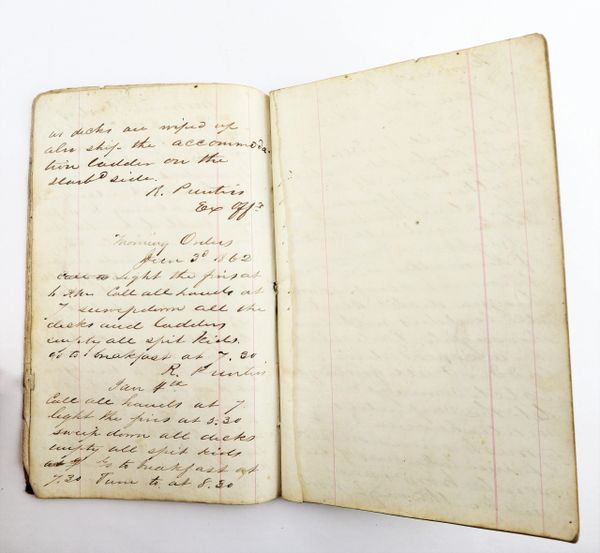 as decks are wiped up
also ship the accommoda-
tion ladder on the
starbd side.
R. Prentiss
Ex Offr
Morning Orders
Jan 3d 1862
light the fires at
6 Call all hands at
7 sweep down all the
decks and ladders
empty all spit kids.
go to breakfast at 7.30
R. Prentiss
Jan 4th
Call all hands at 7
light the fires at 5.30
sweep down all decks
empty all spit kids
Go to breakfast at
7.30 Turn to at 8.30